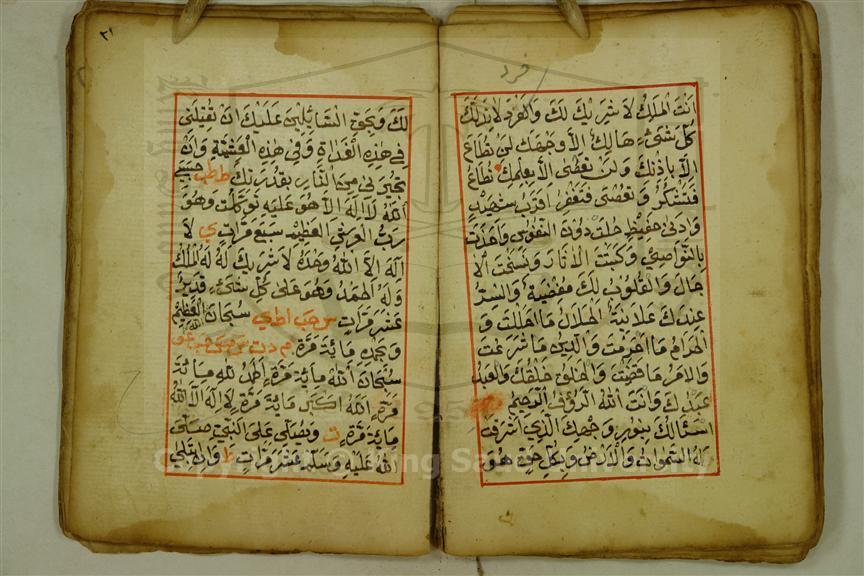 فرد
انت الملك لا شريك لك والفرد لا ند لك
كل شئ هالك الا وجهك لن تطاع
الا باذنك ولن تعصى الا بعلمك تطاع
فتشكر وتعصى فتغفر اقرب شهيد
وادنى حفيظ حلت دون النفوس واخذت
بالنواصي وكتبت الاثار ونسخت الا
جال والقلوب لك مفضية والسر
عندك علانية الحلال ما احللت و
الحرام ما حرمت والدين ما شرعت
والامر ما قضيت والخلق خلقك والعبد
عبدك وانت الله الرؤف الرحيم
اسئالك بنور وجهك الذي اشرقت
له السموات والارض وبكل حق هو
٣١
لك وبحق السائلين عليك ان تقيلنى
في هذه الغداة وفي هذه العشية وان
تجيرنى من النار بقدرتك ط طب حسبي
الله لا اله الا هو عليه توكلت وهو
رب العرش العظيم سبع مرات ي لا
اله الا الله وحده لا شريك له له الملك
وله الحمد وهو على كل شئ قدير
عشر مرات س حب ا ط ي سبحان الله العظيم
وبحمده مائة مرة م د ت س
سبحان الله مائة مرة الحمد لله مائة
مرة الله اكبر مائة مرة لا اله الا الله
مائة مرة ت ويصلى على النبي صلى
الله عليه وسلم عشر مرات ط وان ابتلى
Copyright © King Saud University